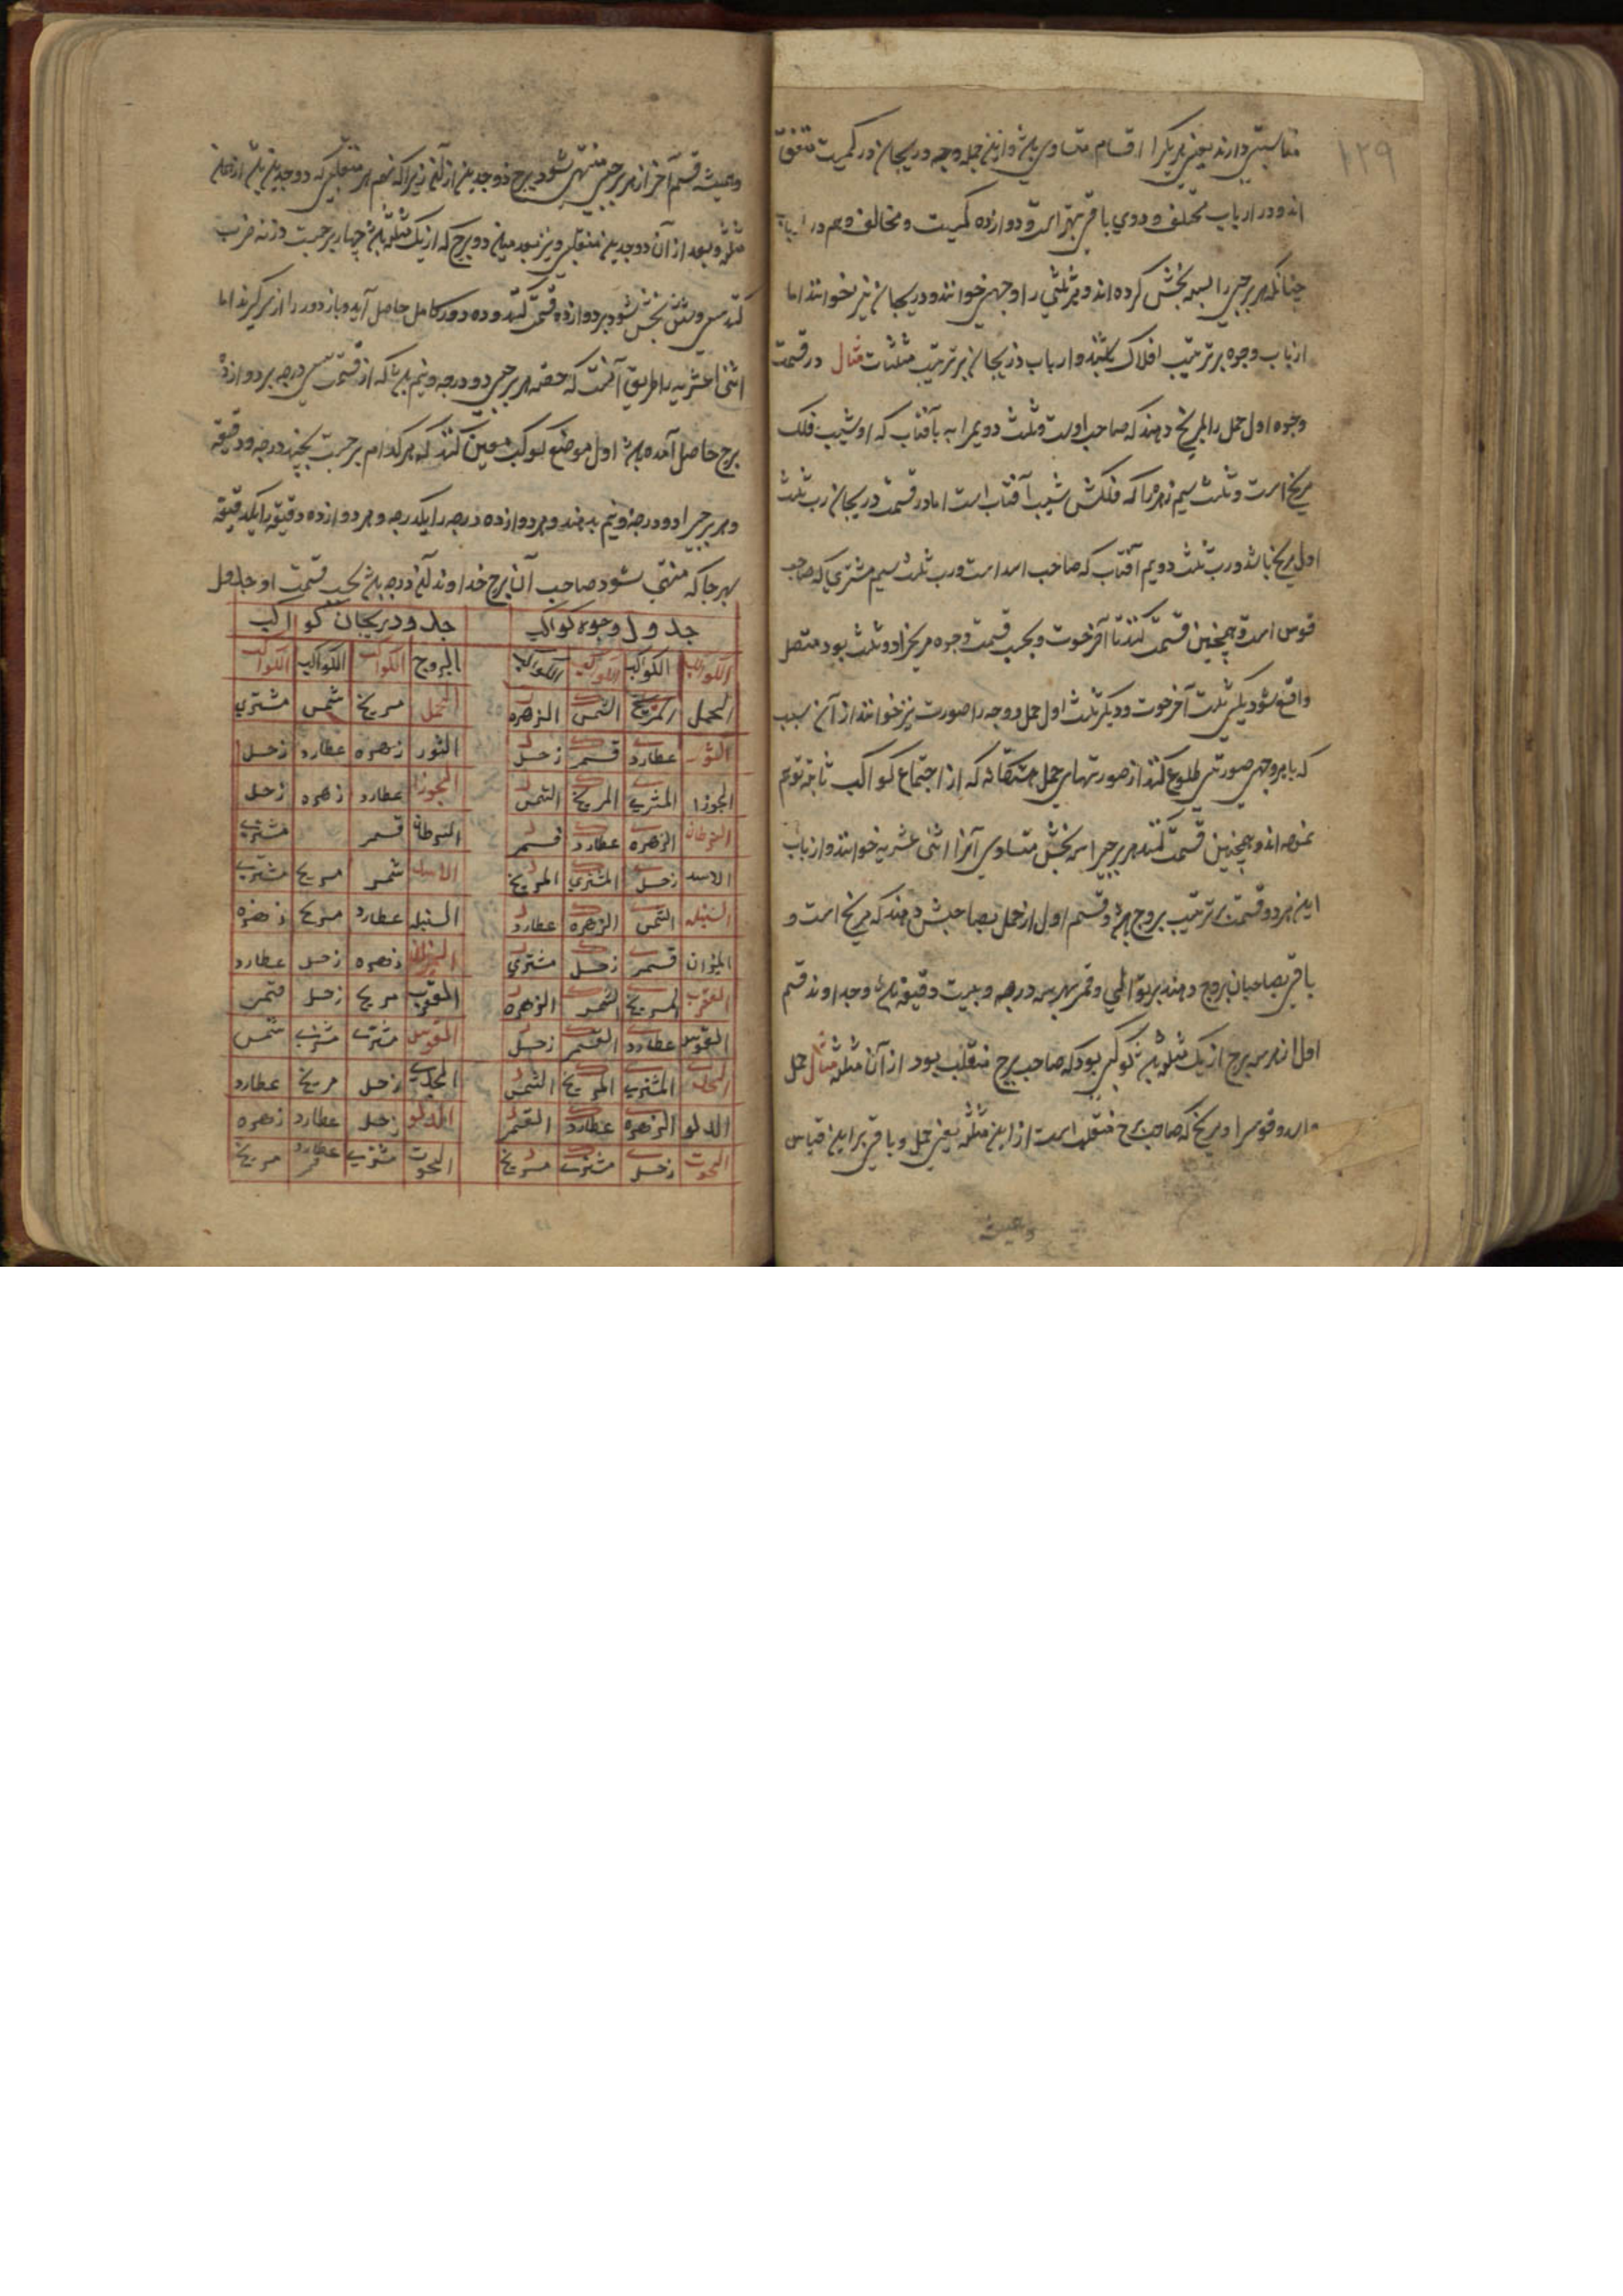 ۱۲۹
مناسبتی دارند یعنی یکدیگرا اقسام متساوی باشد و ازین جمله وجه و دریجان در کمیت متفق
اند و در ارباب مختلف و دوی باقی بهر است و دوازده کمیت و مخالف وهم در ارباب
چنانکه هر برجی را بسه بخش کرده اند و هر ثلثی را وجهی خوانند و دریجان نیز خوانند اما
ارباب وجوه بر ترتیب افلاک باشند و ارباب دریجان بر ترتیب مثلثات مثال در قسمت
وجوه اول حمل را بمریخ دهند که صاحب اوست و ثلث دویم را به بآفتاب که او شیب فلک
مریخ است و ثلث سیم زهره را که فلکش شیب آفتاب است اما در قسمت دریجان رب ثلث
اول مریخ باشد و رب ثلث دویم آفتاب که صاحب اسد است و رب ثلث سیم مشتری که صاحب
قوس است و همچنین قسمت کنند تا آخر حوت و بحسب قسمت وجوه مریخ را دو ثلث بود متصل
واقع شود یکی ثلث آخر حوت و دیگر ثلث اول حمل و وجه را صورت نیز خوانند از آن سبب
که با هر وجهی صورتی طلوع کند از صورتهای حمل هشتگانه که از اجتماع کواکب ثابته توهم
نموده اند و همچنین قسمت کنند هر برجی را بنه بخش متساوی آنرا اثنی عشریه خوانند و ارباب
این هر دو قسمت بر ترتیب بروج بود و قسم اول از حمل بصاحبش دهند که مریخ است و
باقی بصاحبان بروج دهند بر توالی و قسم نهم سه درجه و بیست دقیقه باشد و خداوند قسم
اول از هر سه برج از یک مثلثه باشد کوکبی بود که صاحب برج منقلب بود از آن مثلثه مثال حمل
و اسد و قوس را مریخ که صاحب برج منقلب است از این مثلثه یعنی حمل و باقی برین قیاس
وهمیشه
وهمیشه قسم آخر از هر برجی منتهی شود ببرج ذو جدین از آنکه زیرا که نهم هر منقلبی که ذو جدین باشد از همان
مثلثه و بعد از آن ذو جدین منقلبی و نیز بعد میان دو برج که از یک مثلثه باشد چهار برجست و نه ضرب
کنند سی و شش بخش شود بر دوازده قسمت کنند و ده دور کامل حاصل آید و باز دور را از سر گیرند اما
اثنی عشریه را طریق آنست که حصه هر برجی دو درجه و نیم باشد که از قسمت سی درجه بر دوازده
برج حاصل آمده باشد اول موضع کوکب معین کنند که هر کدام برجست بچند درجه و دقیقه
و هر برجی را دو درجه و نیم بدهند و هر دوازده درجه را یکدرجه و هر دوازده دقیقه را یکدقیقه
بهر جا که منتهی شود صاحب آن برج خداوند آنکه درجه باشد بحسب قسمت او جدول
جدول وجوه کواکب
الکواکب الکواکب الکواکب الکواکب
الحمل المریخ الشمس الزهره
الثور عطارد قمر زحل
الجوزا المشتری المریخ الشمس
السرطان الزهره عطارد قمر
الاسد زحل المشتری المریخ
السنبله الشمس الزهره عطارد
المیزان قمر زحل مشتری
العقرب المریخ الشمس الزهره
القوس عطارد القمر زحل
الجدی المشتری المریخ الشمس
الدلو الزهره عطارد القمر
الحوت زحل مشتری مریخ
جدو دریجان کواکب
البروج الکواکب الکواکب الکواکب
الحمل مریخ شمس مشتری
الثور زهره عطارد زحل
الجوزا عطارد زهره زحل
السرطان قمر مشتری
الاسد شمس مریخ مشتری
السنبله عطارد مریخ زهره
المیزان زهره زحل عطارد
العقرب مریخ زحل قمر
القوس مشتری مشتری شمس
الجدی زحل مریخ عطارد
الدلو زحل عطارد زهره
الحوت مشتری عطارد قمر مریخ